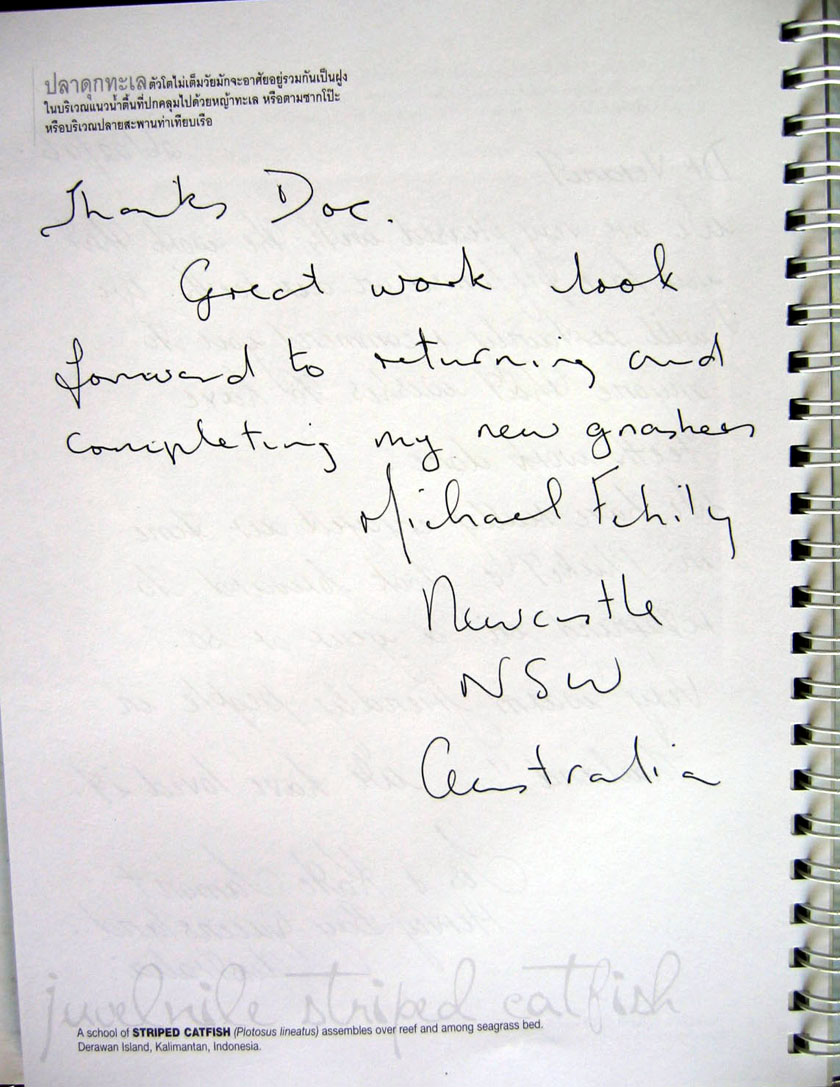 ปลาดุกทะเล ตัวโตไม่เต็มวัยมักจะอาศัยอยู่รวมกันเป็นฝูง
ในบริเวณแนวน้ำตื้นที่ปกคลุมไปด้วยหญ้าทะเล หรือตามซากโป๊ะ
หรือบริเวณปลายสะพานท่าเทียบเรือ
Thanks Doc.
Great work look
forward to returning and
completing my new gnashers
Michael Fehily
Newcastle
NSW
Australia
juvelnile striped catfish
A school of STRIPED CATFISH (Plotosus lineatus) assembles over reef and among seagrass bed.
Derawan Island, Kalimantan, Indonesia.